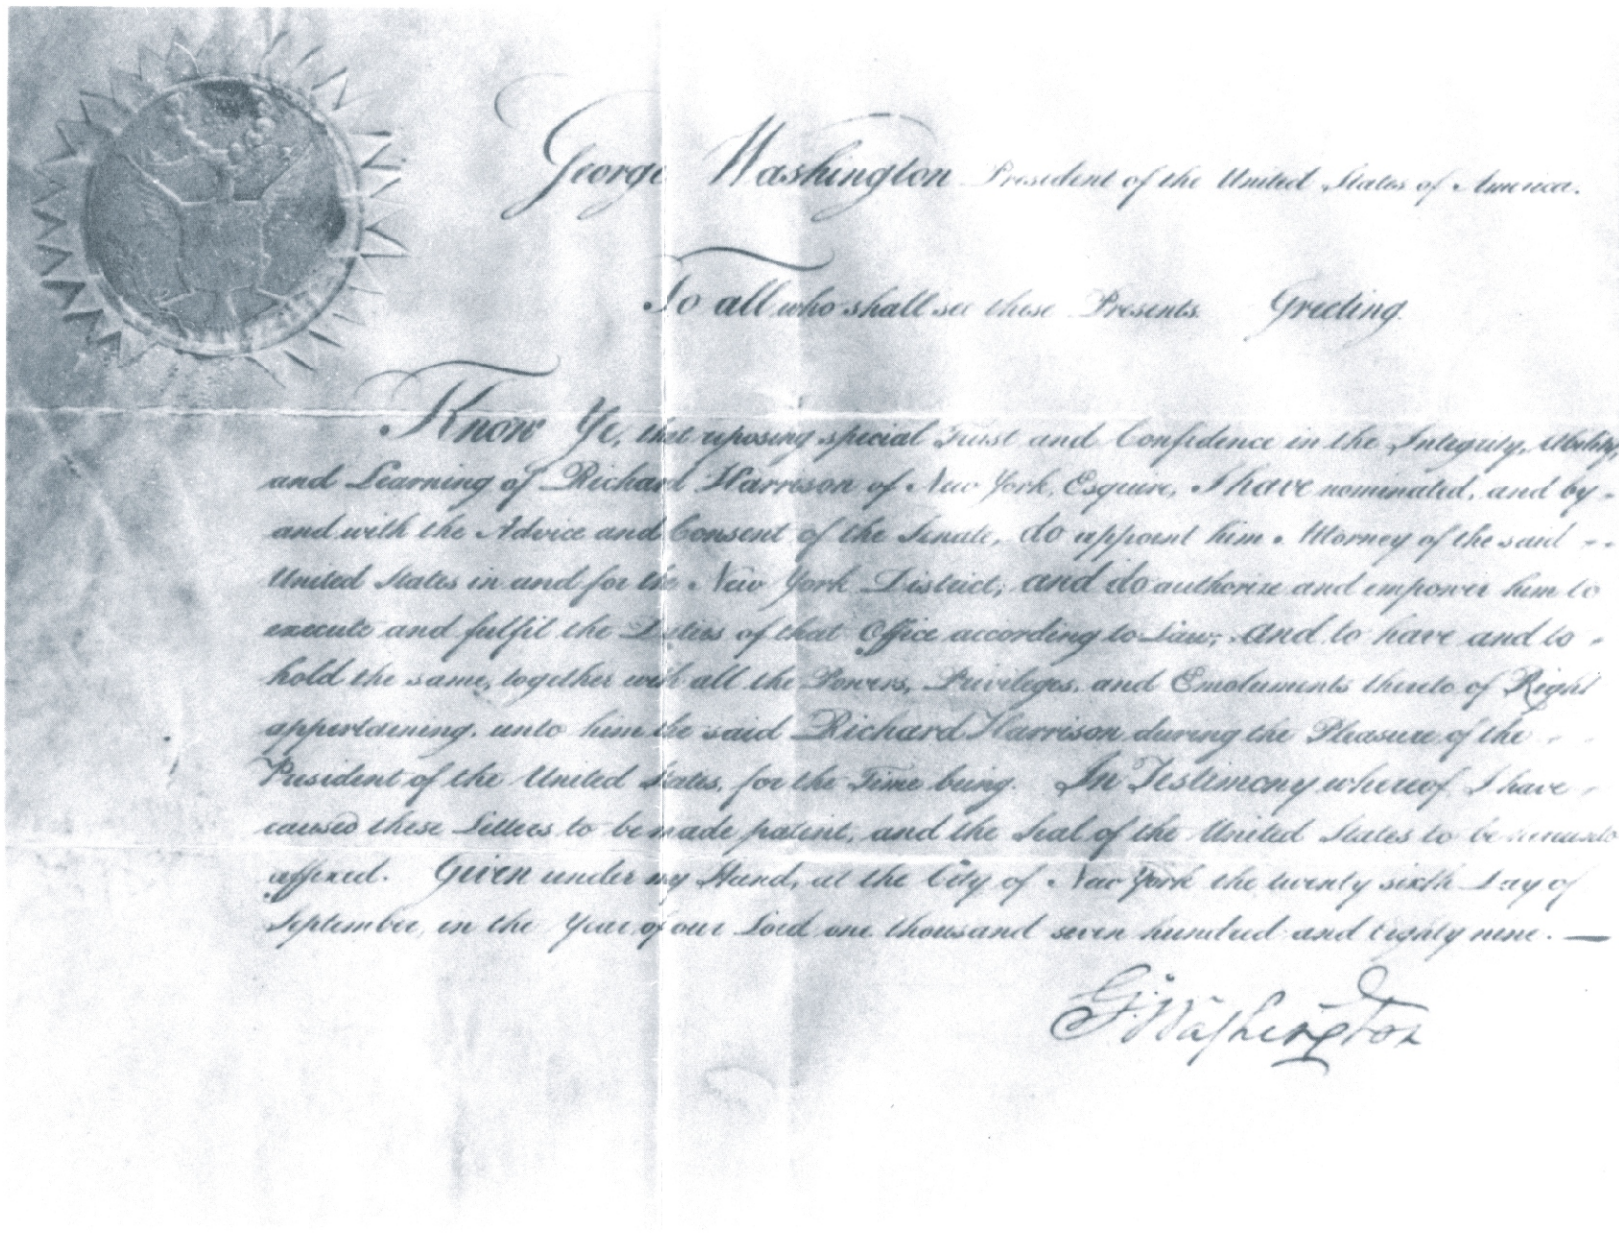 George Washington President of the United States of America.
To all who shall see these Presents. Greeting.
Know Ye, that reposing special Trust and Confidence in the Integrity, Ability,
and Learning of Richard Harrison of New York, Esquire, I have nominated, and by
and with the Advice and Consent of the Senate, do appoint him Attorney of the said
United States in and for the New York District; and do authorize and empower him to
execute and fulfil the Duties of that Office according to Law; and to have and to
hold the same, together with all the Powers, Privileges, and Emoluments thereto of Right
appertaining, unto him the said Richard Harrison during the Pleasure of the
President of the United States, for the Time being. In Testimony whereof I have
caused these Letters to be made patent, and the Seal of the United States to be hereunto
affixed. Given under my Hand, at the City of New York the twenty sixth Day of
September, in the Year of our Lord one thousand seven hundred and Eighty nine.
G:Washington